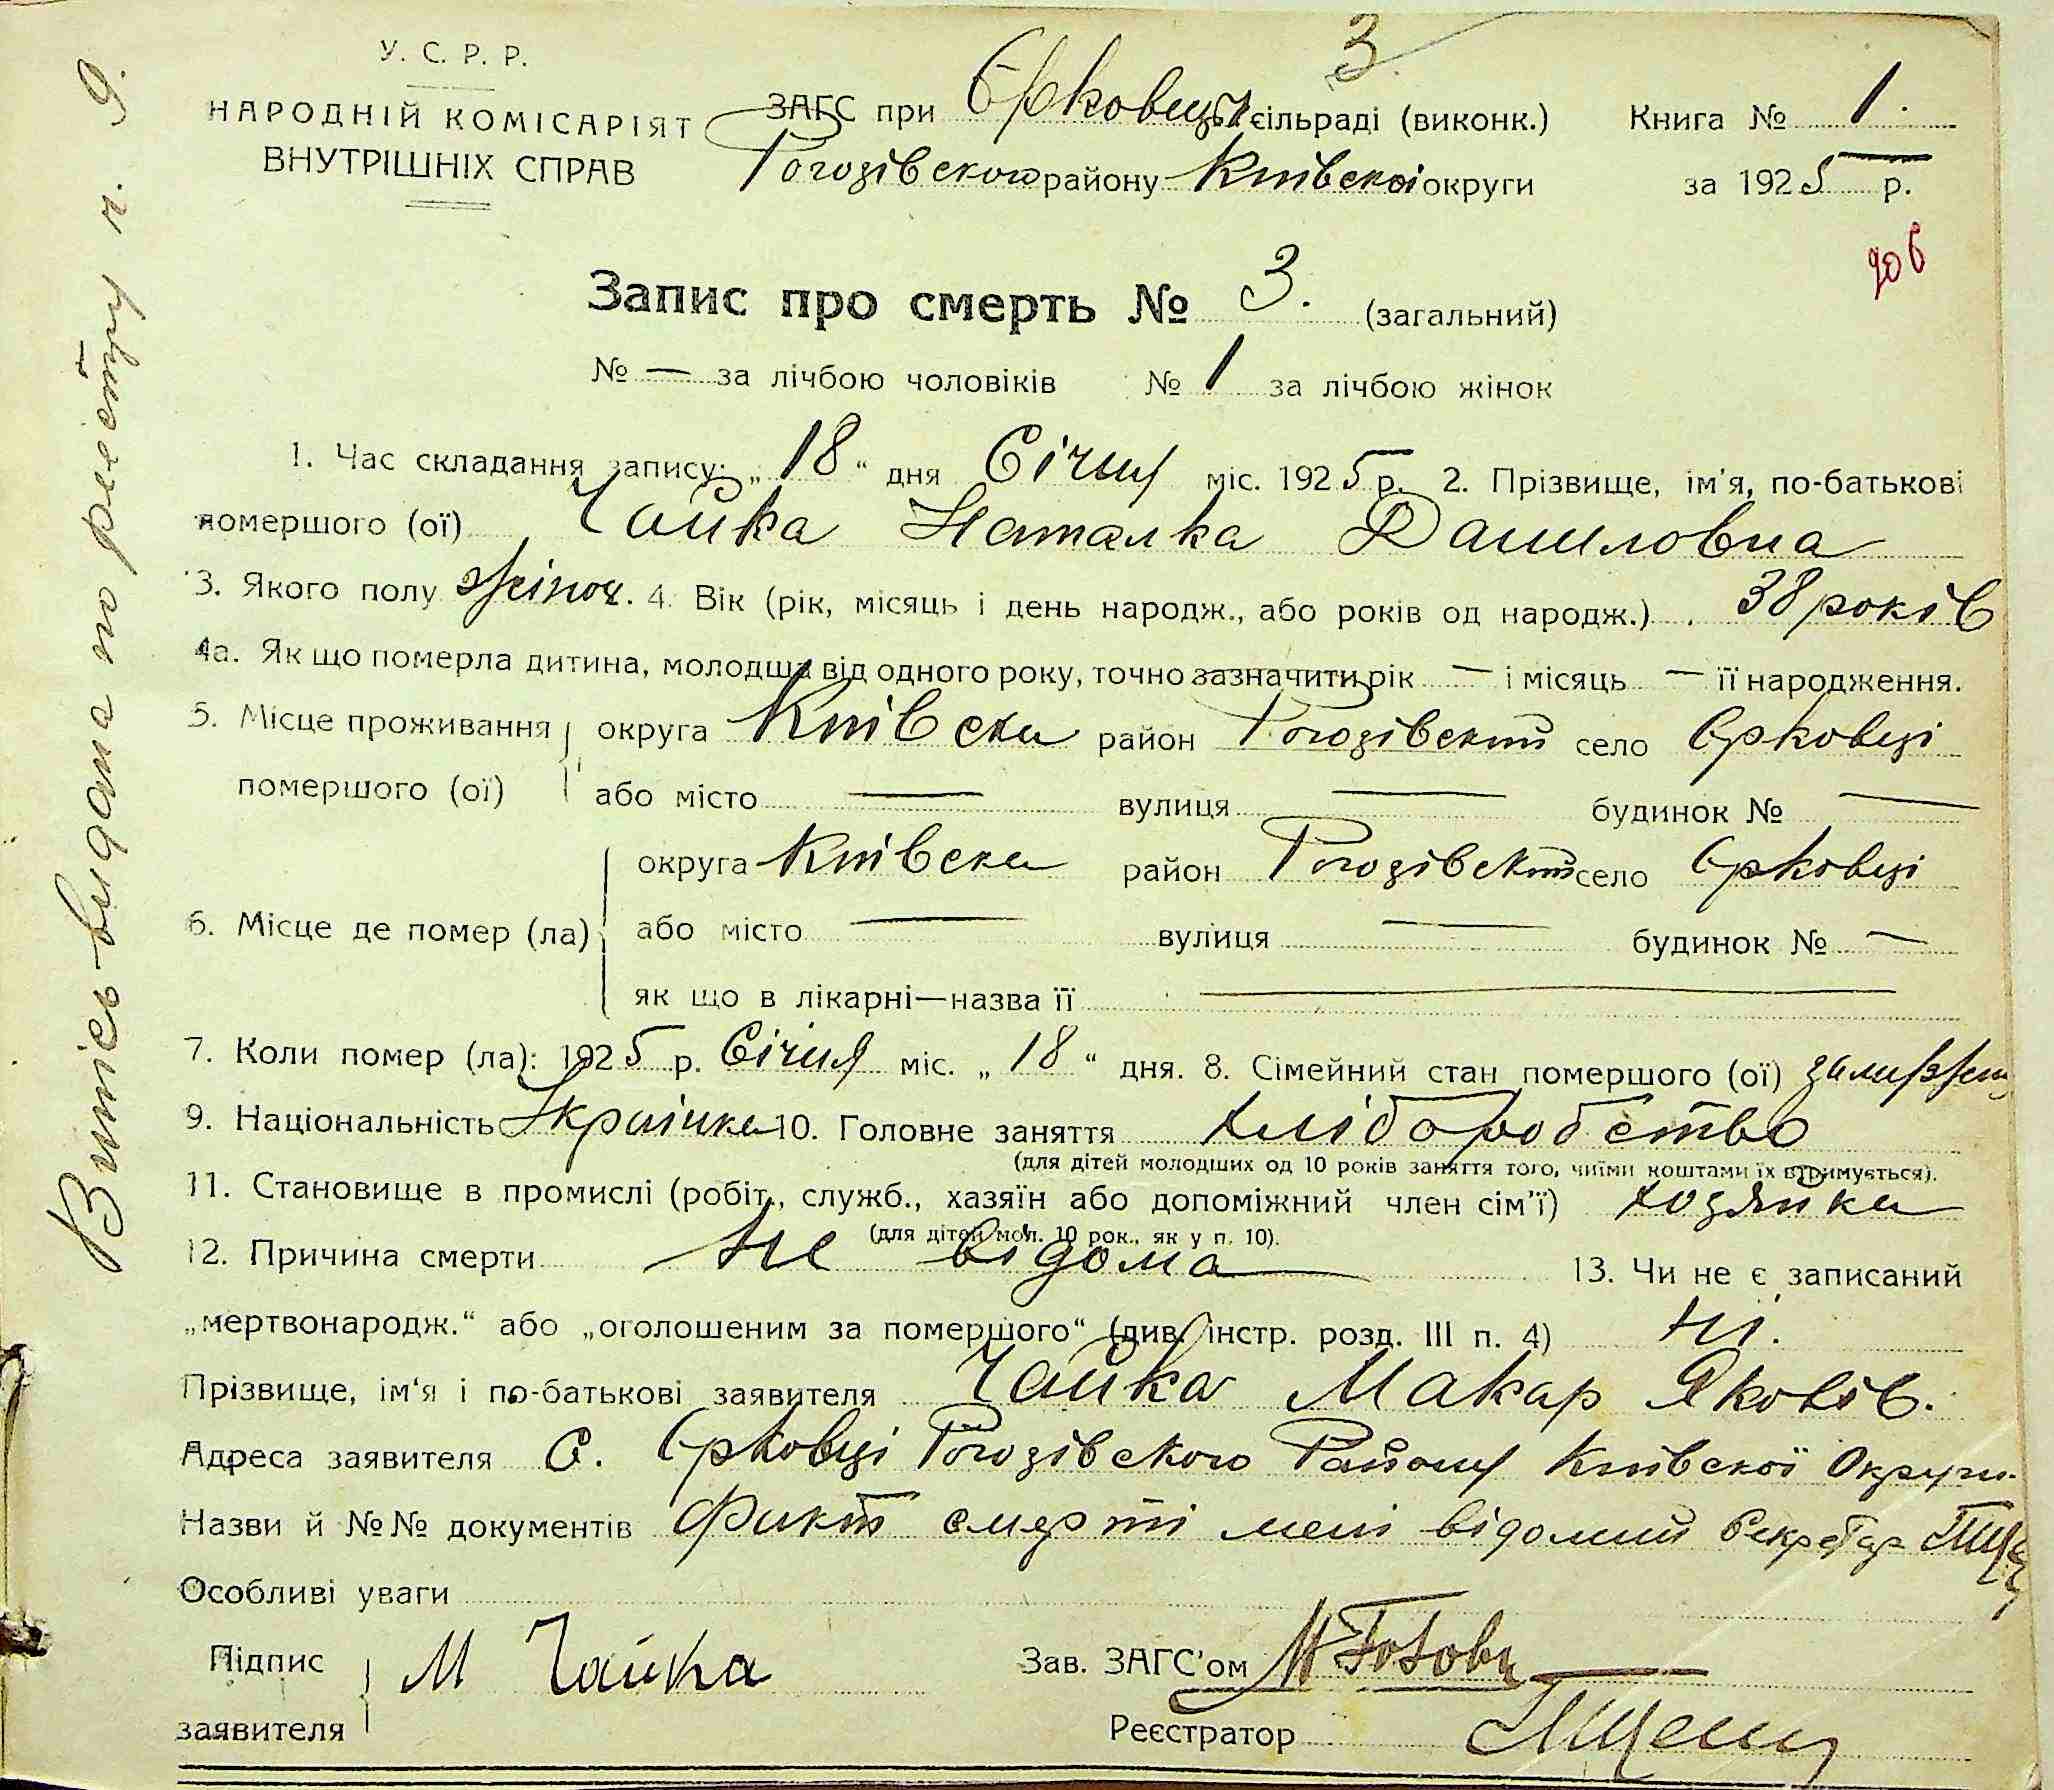 3.
У. С. Р. Р.
НАРОДНІЙ КОМІСАРІЯТ
ВНУТРІШНІХ СПРАВ
ЗАГС при Єрковецьк сільраді (виконк.)
Рогозівского району Київскої округи
Книга № 1.
за 1925 р.
Запис про смерть № 3. (загальний)
№ — за лічбою чоловіків № 1 за лічбою жінок
1. Час складання запису: „18“ дня Січня міс. 1925 р. 2. Прізвище, ім'я, по-батькові
помершого (ої) Чайка Наталка Даниловна
3. Якого полу жіноч. 4. Вік (рік, місяць і день народж., або років од народж.) 38 років
4а. Як що померла дитина, молодша від одного року, точно зазначити рік — і місяць — її народження.
5. Місце проживання округа Київска район Рогозівский село Єрковці
помершого (ої) або місто — вулиця — будинок № —
округа Київска район Рогозівский село Єрковці
6. Місце де помер (ла) або місто — вулиця — будинок № —
як що в лікарні—назва її —
7. Коли помер (ла): 1925 р. Січня міс. „18“ дня. 8. Сімейний стан помершого (ої)
9. Національність Українка 10. Головне заняття хліборобство
(для дітей молодших од 10 років заняття того, чиїми коштами їх втримується).
11. Становище в промислі (робіт., служб., хазяїн або допоміжний член сім'ї) хозяйка
(для дітей мол. 10 рок., як у п. 10).
12. Причина смерти не відома 13. Чи не є записаний
„мертвонародж.“ або „оголошеним за помершого“ (див. інстр. розд. III п. 4) ні.
Прізвище, ім'я і по-батькові заявителя Чайка Макар Яковів.
Адреса заявителя С. Єрковці Рогозівского Району Київскої Округи.
Назви й №№ документів Факт смерти мені відомий Секретар
Особливі уваги
Підпис
заявителя М Чайка
Зав. ЗАГС'ом
Реєстратор
Витіс видана по реєстру н. 9.